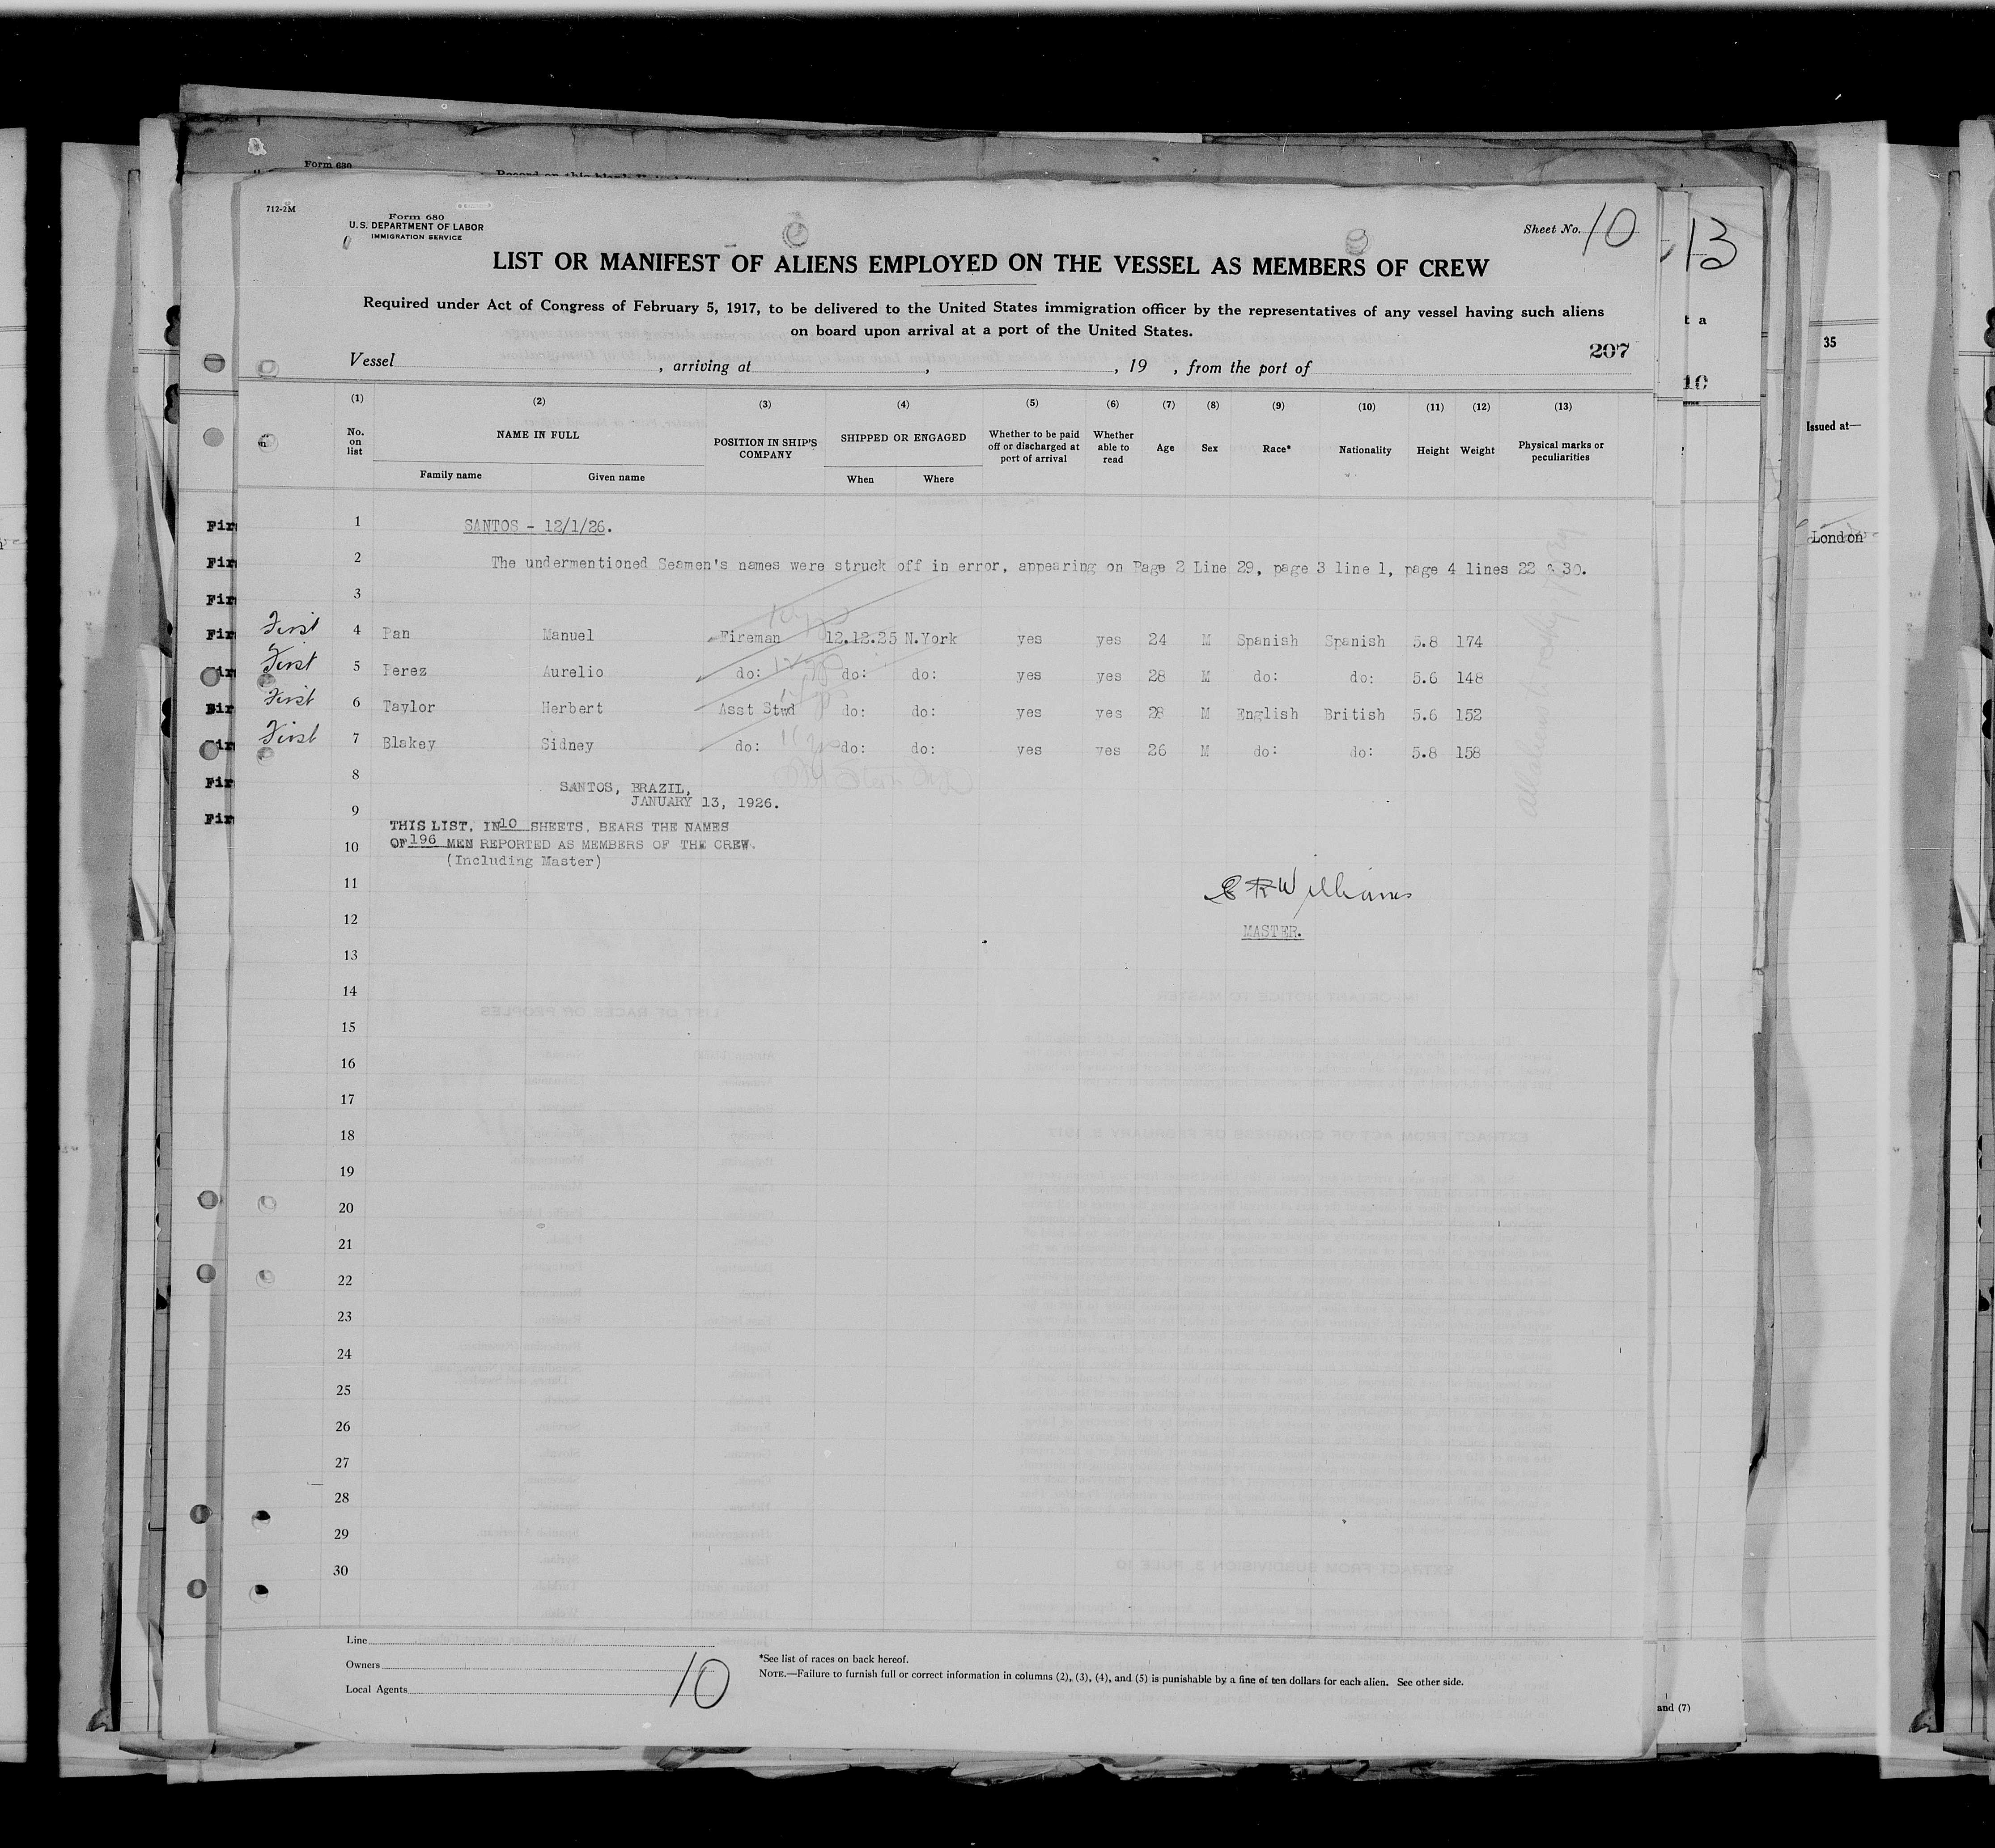 Form 630
712-2M
Form 680
U.S. DEPARTMENT OF LABOR
IMMIGRATION SERVICE
Sheet No. 10
13
LIST OR MANIFEST OF ALIENS EMPLOYED ON THE VESSEL AS MEMBERS OF CREW
Required under Act of Congress of February 5, 1917, to be delivered to the United States immigration officer by the representatives of any vessel having such aliens
on board upon arrival at a port of the United States.
207
Vessel , arriving at , , 19 , from the port of
t a
10
35
Issued at—
London
(1) (2) (3) (4) (5) (6) (7) (8) (9) (10) (11) (12) (13)
No. on list
NAME IN FULL
Family name Given name
POSITION IN SHIP'S COMPANY
SHIPPED OR ENGAGED
When Where
Whether to be paid off or discharged at port of arrival
Whether able to read
Age Sex Race* Nationality Height Weight
Physical marks or peculiarities
1 SANTOS - 12/1/26.
2 The undermentioned Seamen's names were struck off in error, appearing on Page 2 Line 29, page 3 line 1, page 4 lines 22 & 30.
3
First 4 Pan Manuel Fireman 12.12.25 N.York yes yes 24 M Spanish Spanish 5.8 174
First 5 Perez Aurelio do: do: do: yes yes 28 M do: do: 5.6 148
First 6 Taylor Herbert Asst Stwd do: do: yes yes 28 M English British 5.6 152
First 7 Blakey Sidney do: do: do: yes yes 26 M do: do: 5.8 158
8
SANTOS, BRAZIL,
JANUARY 13, 1926.
9
THIS LIST, IN 10 SHEETS, BEARS THE NAMES
10 OF 196 MEN REPORTED AS MEMBERS OF THE CREW.
(Including Master)
11
Williams
12
MASTER.
13
14
15
16
17
18
19
20
21
22
23
24
25
26
27
28
29
30
Line
Owners
Local Agents
10
*See list of races on back hereof.
NOTE.—Failure to furnish full or correct information in columns (2), (3), (4), and (5) is punishable by a fine of ten dollars for each alien. See other side.
and (7)